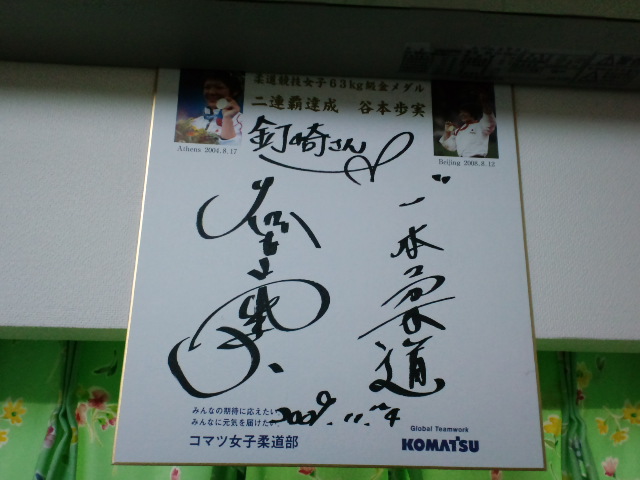 柔道競技女子63kg級金メダル
二連覇達成 谷本歩実
Athens 2004.8.17
Beijing 2008.8.12
釘崎さん
一本柔道
2009.11.4
みんなの期待に応えたい
みんなに元気を届けたい
コマツ女子柔道部
Global Teamwork
KOMATSU